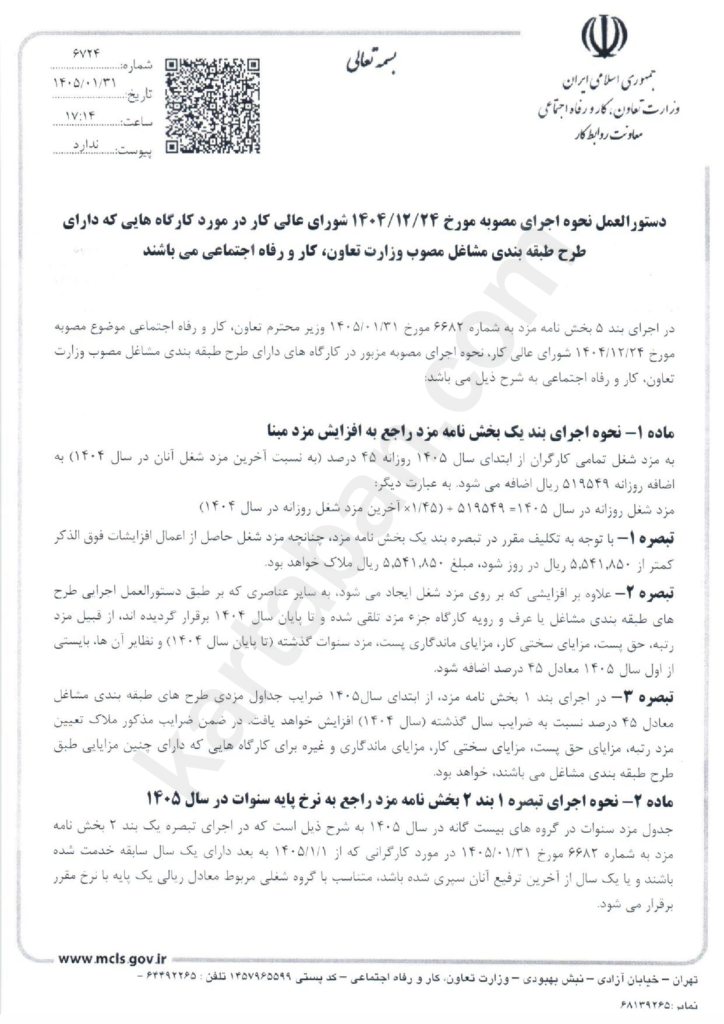 جمهوری اسلامی ایران
وزارت تعاون، کار و رفاه اجتماعی
معاونت روابط کار
بسمه تعالی
شماره: ۶۷۲۴
تاریخ: ۱۴۰۵/۰۱/۳۱
ساعت: ۱۷:۱۴
پیوست: ندارد
دستورالعمل نحوه اجرای مصوبه مورخ ۱۴۰۴/۱۲/۲۴ شورای عالی کار در مورد کارگاه هایی که دارای
طرح طبقه بندی مشاغل مصوب وزارت تعاون، کار و رفاه اجتماعی می باشند
در اجرای بند ۵ بخش نامه مزد به شماره ۶۶۸۲ مورخ ۱۴۰۵/۰۱/۳۱ وزیر محترم تعاون، کار و رفاه اجتماعی موضوع مصوبه
مورخ ۱۴۰۴/۱۲/۲۴ شورای عالی کار، نحوه اجرای مصوبه مزبور در کارگاه های دارای طرح طبقه بندی مشاغل مصوب وزارت
تعاون، کار و رفاه اجتماعی به شرح ذیل می باشد:
ماده ۱- نحوه اجرای بند یک بخش نامه مزد راجع به افزایش مزد مبنا
به مزد شغل تمامی کارگران از ابتدای سال ۱۴۰۵ روزانه ۴۵ درصد (به نسبت آخرین مزد شغل آنان در سال ۱۴۰۴) به
اضافه روزانه ۵۱۹۵۴۹ ریال اضافه می شود. به عبارت دیگر:
مزد شغل روزانه در سال ۱۴۰۵= ۵۱۹۵۴۹ + (۱/۴۵× آخرین مزد شغل روزانه در سال ۱۴۰۴)
تبصره ۱- با توجه به تکلیف مقرر در تبصره بند یک بخش نامه مزد، چنانچه مزد شغل حاصل از اعمال افزایشات فوق الذکر
کمتر از ۵,۵۴۱,۸۵۰ ریال در روز شود، مبلغ ۵,۵۴۱,۸۵۰ ریال ملاک خواهد بود.
تبصره ۲- علاوه بر افزایشی که بر روی مزد شغل ایجاد می شود، به سایر عناصری که بر طبق دستورالعمل اجرایی طرح
های طبقه بندی مشاغل یا عرف و رویه کارگاه جزء مزد تلقی شده و تا پایان سال ۱۴۰۴ برقرار گردیده اند، از قبیل مزد
رتبه، حق پست، مزایای سختی کار، مزایای ماندگاری پست، مزد سنوات گذشته (تا پایان سال ۱۴۰۴) و نظایر آن ها، بایستی
از اول سال ۱۴۰۵ معادل ۴۵ درصد اضافه شود.
تبصره ۳- در اجرای بند ۱ بخش نامه مزد، از ابتدای سال۱۴۰۵ ضرایب جداول مزدی طرح های طبقه بندی مشاغل
معادل ۴۵ درصد نسبت به ضرایب سال گذشته (سال ۱۴۰۴) افزایش خواهد یافت. در ضمن ضرایب مذکور ملاک تعیین
مزد رتبه، مزایای حق پست، مزایای سختی کار، مزایای ماندگاری و غیره برای کارگاه هایی که دارای چنین مزایایی طبق
طرح طبقه بندی مشاغل می باشند، خواهد بود.
ماده ۲- نحوه اجرای تبصره ۱ بند ۲ بخش نامه مزد راجع به نرخ پایه سنوات در سال ۱۴۰۵
جدول مزد سنوات در گروه های بیست گانه در سال ۱۴۰۵ به شرح ذیل است که در اجرای تبصره یک بند ۲ بخش نامه
مزد به شماره ۶۶۸۲ مورخ ۱۴۰۵/۰۱/۳۱ در مورد کارگرانی که از ۱۴۰۵/۱/۱ به بعد دارای یک سال سابقه خدمت شده
باشند و یا یک سال از آخرین ترفیع آنان سپری شده باشد، متناسب با گروه شغلی مربوط معادل ریالی یک پایه با نرخ مقرر
برقرار می شود.
kartaban.com
www.mcls.gov.ir
تهران – خیابان آزادی – نبش بهبودی – وزارت تعاون، کار و رفاه اجتماعی – کد پستی ۱۴۵۷۹۶۵۵۹۹ تلفن : ۶۴۴۹۲۲۶۵ –
نمابر:۶۸۱۳۹۲۶۵